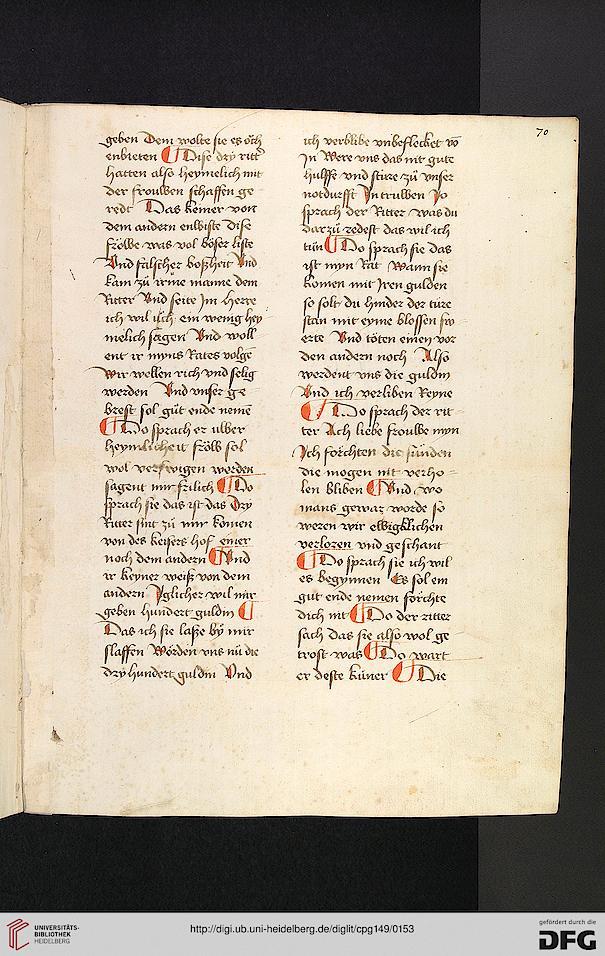 70
geben Dem wolte sie es och
enbieten Dise dry ritt
hatten also heymelich mit
der frouwen schaffen ge
redt Das keiner von
dem andern enwiste Dise
frowe was vol boser liste
Vnd falscher boßheit Vnd
kam zu irme manne dem
Ritter Vnd seite Im Herre
ich wil uch ein wenig hey
melich sagen Vnd woll
ent ir myns Rates volge
Wir wellen rich vnd selig
werden Vnd vnser ge
brest sol gut ende neme
Do sprach er uber
heymlicheit frow sol
wol verswigen worden
sagent mir frilich Do
sprach sie das ist das Dry
Ritter sint zu mir komen
von des keisers hof einer
noch dem andern Vnd
ir keyner weiß von dem
andern Iglicher wil mir
geben hundert guldin
Das ich sie laße by mir
slaffen Worden vns nu die
dry hundert guldin Vnd
ich verblibe vnbeflecket vo
In Were vns das nit gute
hulffe vnd sture zu vnser
notdurfft In truwen Jo
sprach der Ritter was du
darzu redest das wil ich
tun Do sprach sie das
ist myn Rat Wann sie
komen mit Iren gulden
so solt du hinder der ture
stan mit eyme blossen sw
erte Vnd toten einen vor
den andern noch Also
werdent vns die guldin
Vnd ich verliben Reyne
Do sprach der rit
ter Ach liebe frouwe myn
Ich forchten die sunden
die mogen nit verho
len bliben Vnd wo
mans gewar worde so
weren wir ewigklichen
verloren vnd geschant
Do sprach sie ich wil
es begynnen Es sol ein
gut ende nemen forchte
dich nit Do der ritter
sach das sie also wol ge
trost was Do wart
er deste kuner Die
UNIVERSITÄTS-
BIBLIOTHEK
HEIDELBERG
http://digi.ub.uni-heidelberg.de/diglit/cpg149/0153
gefördert durch die
DFG